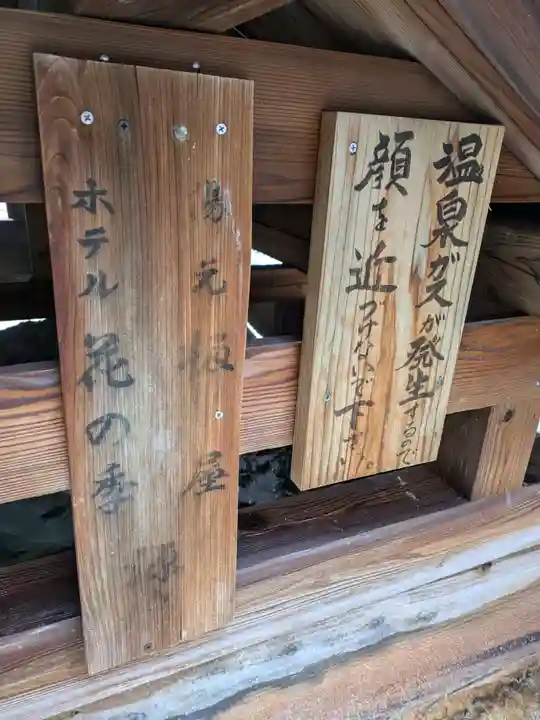 温泉ガスが発生するので
顔を近づけないで下さい。
湯元板屋
ホテル花の季